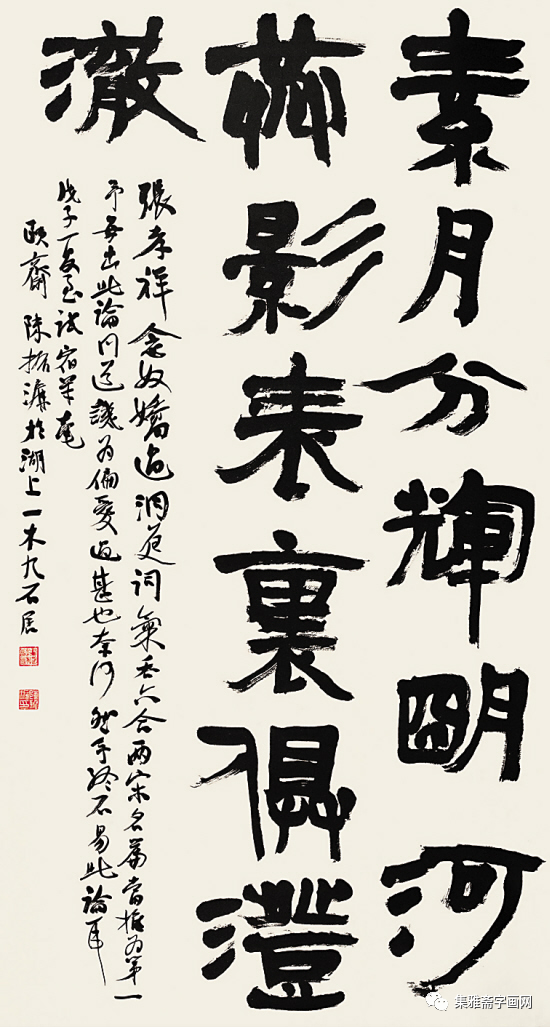 素月分輝朙河
共影表裏俱澄
澈
張孝祥念奴嬌過洞庭詞氣吞六合兩宋名篇當推為第一
予每出此論同道譏為偏愛過甚也奈何然予終不易此論耳
戊子夏至試宿羊毫
頤齋陳振濂於湖上一木九石居
集雅斋字画网